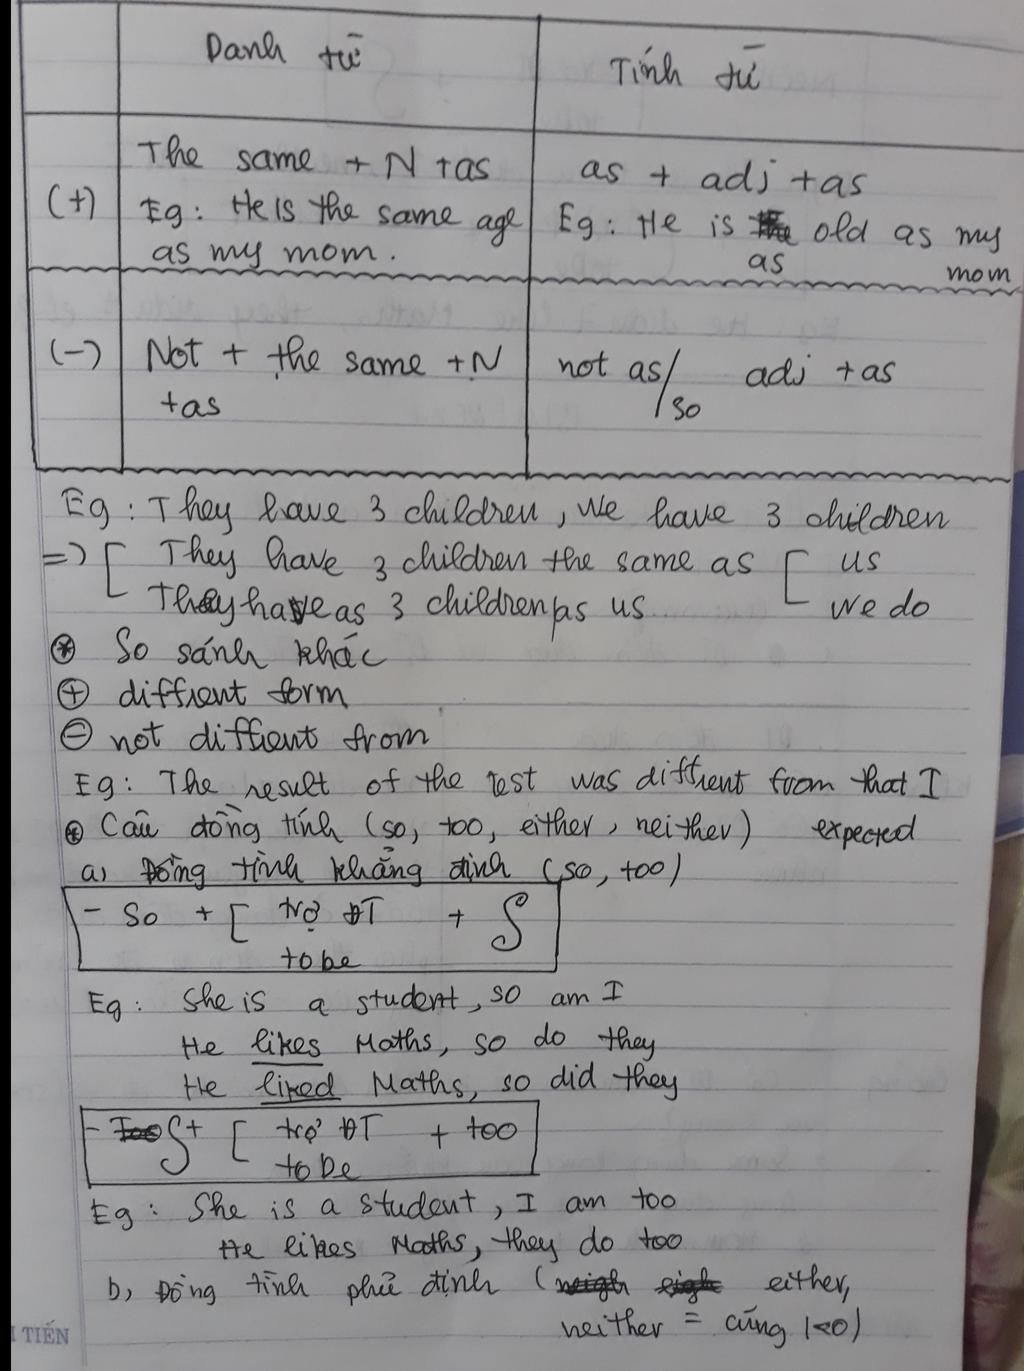 Danh từ Tính từ
(+) The same + N + as as + adj + as
Eg: He is the same age Eg: He is as old as my
as my mom. mom
(-) Not + the same + N not as/so adj + as
+as
Eg: They have 3 children, We have 3 children
=> [ They have 3 children the same as [ us
They have as 3 children as us we do
* So sánh khác
+ diffrent form
- not diffrent from
Eg: The result of the test was diffrent from that I
* Câu đồng tính (so, too, either, neither) expected
a, Đồng tình khẳng định (so, too)
- So + [ trợ ĐT + S
to be
Eg: She is a student, so am I
He likes Maths, so do they
He liked Maths, so did they
- S + [ trợ ĐT + too
to be
Eg: She is a student, I am too
He likes Maths, they do too
b, Đồng tình phủ định ( either,
neither = cũng ko)
TIẾN